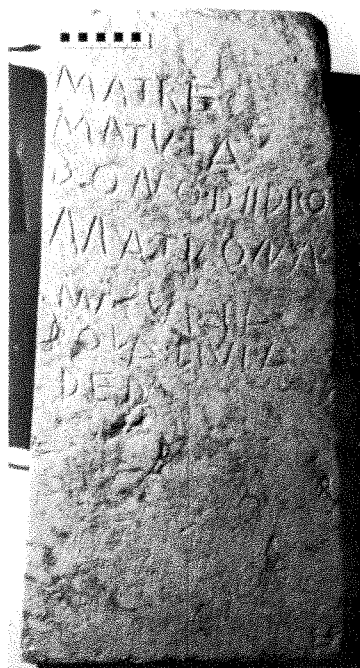 MATRE
MATVTA
DONO DIIDRO
MATRONA
M CVRIA
POLA LIVIA
DEDA